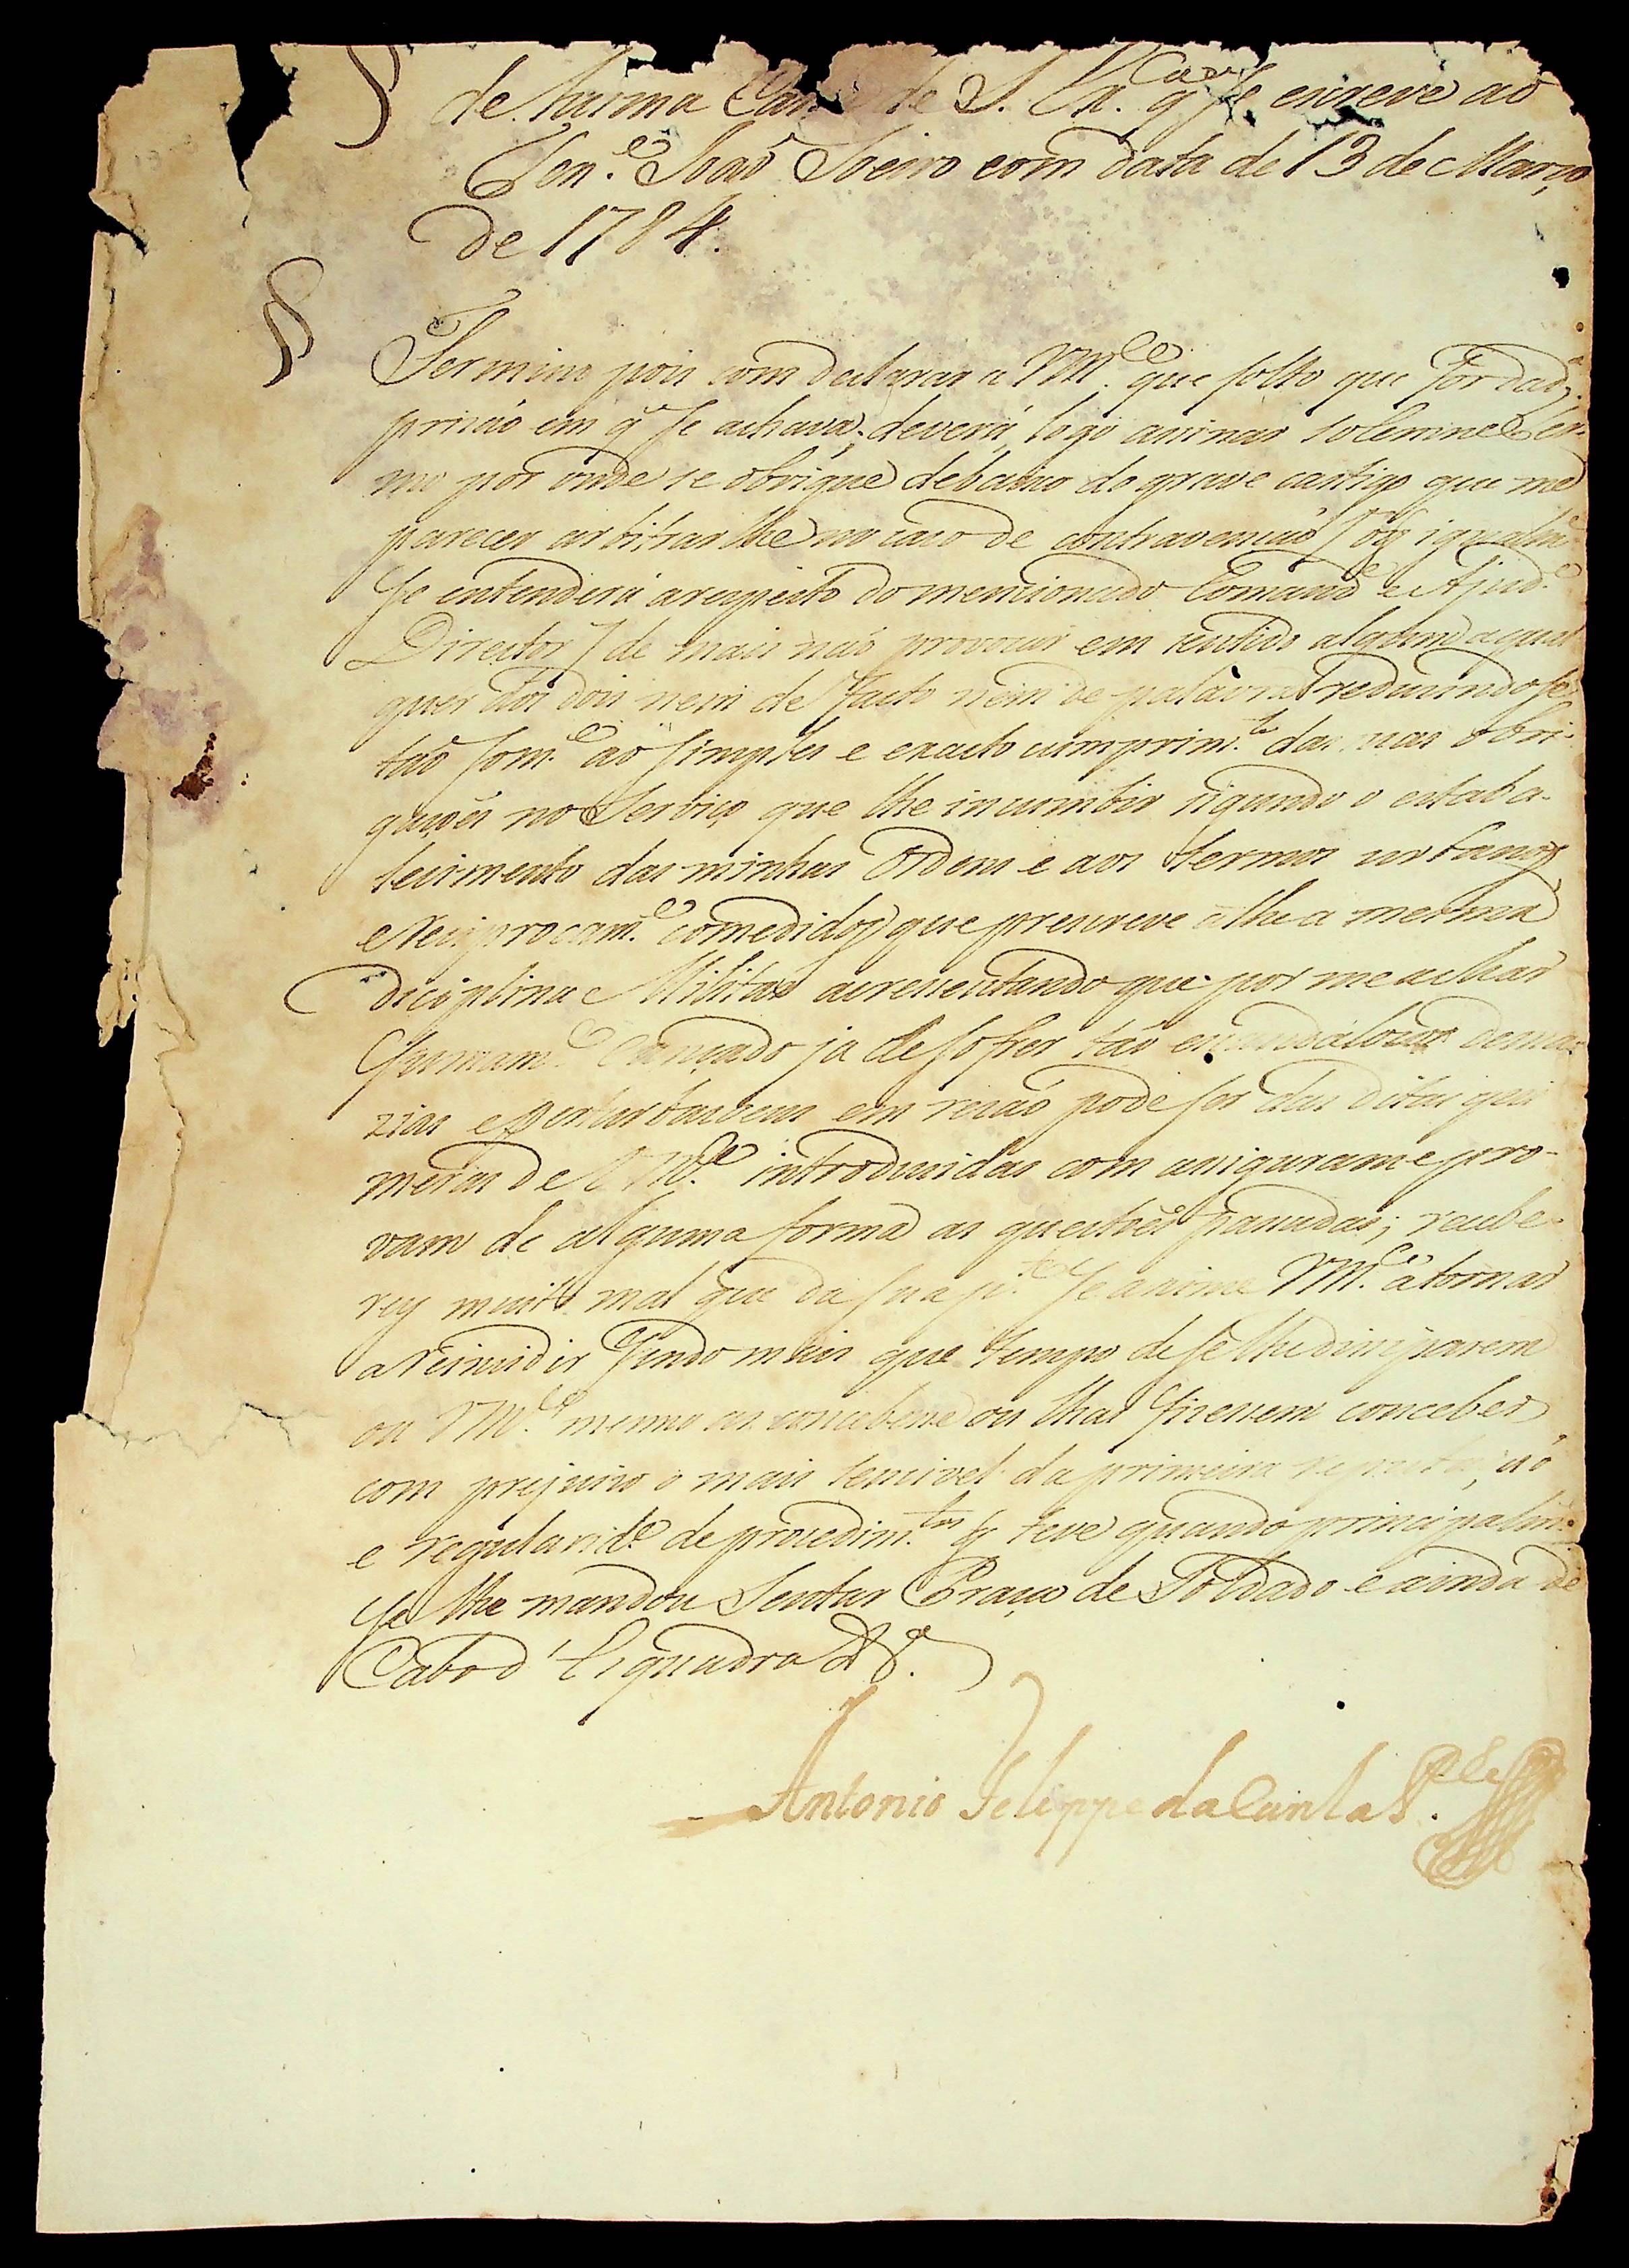 § de huma Carta de S. Ex.ª q̃ se escreve ao
Ten.e João Soeiro com data de 13 de Março
de 1784.
§ Termino pois com declarar a VM.ce que solto que for da
prizaó em q̃ se achava, deverá logo asinar solemne Ter-
mo por onde se obrigue debaixo do grave castigo que me
parecer arbitrar lhe no cazo de contravençaó (o q̃ igualm.e
se entenderá a respeito do mencionado Comand.e e Ajud.e
Director) de mais naó provocar em sentido algum a qual
quer dos dois nem de facto nem de palavra reduzindo se
taó som.e ao simples e exacto cumprim.to das suas obri-
gaçoẽs no Serviço que lhe incumbir segundo o estaba-
lecimento das minhas Ordens e aos termos urbanos,
e reciprocam.e comedidos que prescreve a lhe a mesma
diciplina Militar acrescentando que por me achar
sumam.e cançado ja de sofrer taó escandalozas dema-
zias e perturbaçoens em rezaó pode ser das ditas pri
meiras de VM.ce introduzidas com asigurarme pro-
vam de alguma forma as questoẽs pasadas; recebe-
rey muito mal que da sua p.te se anime VM.ce a tornar
a reincidir sendo mais que tempo de se lhe disiparem
ou VM.ce mesmo as concebese ou lhas fizesem conceber
com prejuizo o mais sencivel da primeira reputaçaó
e regularid.e de procedim.tos q̃ teve quando principalm.e
se lhe mandou Sentar Praça de Soldado e ainda de
Cabo d'Esquadra &ª.
Antonio Felippe da Cunha